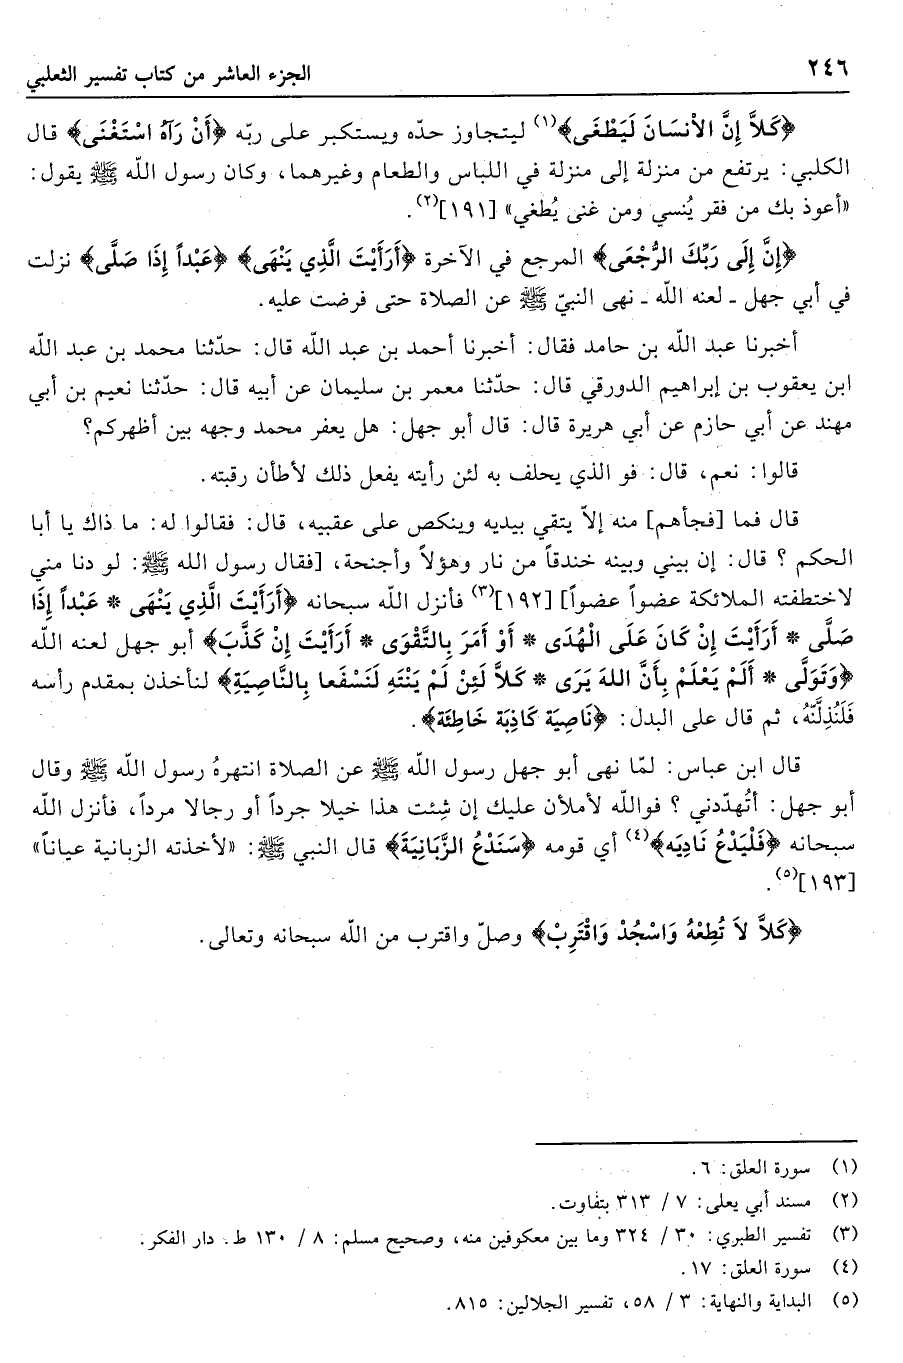 ٢٤٦
الجزء العاشر من كتاب تفسير الثعلبي
﴿كَلاَّ إِنَّ الأنسَانَ لَيَطْغَى﴾(١) ليتجاوز حدّه ويستكبر على ربّه ﴿أَنْ رَآهُ اسْتَغْنَى﴾ قال
الكلبي: يرتفع من منزلة إلى منزلة في اللباس والطعام وغيرهما، وكان رسول الله ﷺ يقول:
«أعوذ بك من فقر يُنسي ومن غنى يُطغي» [١٩١](٢).
﴿إِنَّ إِلَى رَبِّكَ الرُّجْعَى﴾ المرجع في الآخرة ﴿أَرَأَيْتَ الَّذِي يَنْهَى﴾ ﴿عَبْداً إِذَا صَلَّى﴾ نزلت
في أبي جهل ـ لعنه الله ـ نهى النبيّ ﷺ عن الصلاة حتى فرضت عليه.
أخبرنا عبد الله بن حامد فقال: أخبرنا أحمد بن عبد الله قال: حدّثنا محمد بن عبد الله
ابن يعقوب بن إبراهيم الدورقي قال: حدّثنا معمر بن سليمان عن أبيه قال: حدّثنا نعيم بن أبي
مهند عن أبي حازم عن أبي هريرة قال: قال أبو جهل: هل يعفر محمد وجهه بين أظهركم؟
قالوا: نعم، قال: فو الذي يحلف به لئن رأيته يفعل ذلك لأطأن رقبته.
قال فما [فجأهم] منه إلاّ يتقي بيديه وينكص على عقبيه، قال: فقالوا له: ما ذاك يا أبا
الحكم ؟ قال: إن بيني وبينه خندقاً من نار وهؤلاً وأجنحة، [فقال رسول الله ﷺ: لو دنا مني
لاختطفته الملائكة عضواً عضواً] [١٩٢](٣) فأنزل الله سبحانه ﴿أَرَأَيْتَ الَّذِي يَنْهَى * عَبْداً إِذَا
صَلَّى * أَرَأَيْتَ إِنْ كَانَ عَلَى الْهُدَى * أَوْ أَمَرَ بِالتَّقْوَى * أَرَأَيْتَ إِنْ كَذَّبَ﴾ أبو جهل لعنه الله
﴿وَتَوَلَّى * أَلَمْ يَعْلَمْ بِأَنَّ اللهَ يَرَى * كَلاَّ لَئِنْ لَمْ يَنْتَهِ لَنَسْفَعا بِالنَّاصِيَةِ﴾ لنأخذن بمقدم رأسه
فَلَنُذِلَّنَّهُ، ثم قال على البدل: ﴿نَاصِيَة كَاذِبَة خَاطِئَة﴾.
قال ابن عباس: لمّا نهى أبو جهل رسول الله ﷺ عن الصلاة انتهرهُ رسول الله ﷺ وقال
أبو جهل: أتُهدّدني ؟ فوالله لأملأن عليك إن شِئت هذا خيلا جرداً أو رجالا مرداً، فأنزل الله
سبحانه ﴿فَلْيَدْعُ نَادِيَه﴾(٤) أي قومه ﴿سَنَدْعُ الزَّبَانِيَةَ﴾ قال النبي ﷺ: «لأخذته الزبانية عياناً»
[١٩٣](٥).
﴿كَلاَّ لاَ تُطِعْهُ وَاسْجُدْ وَاقْتَرِبْ﴾ وصلّ واقترب من الله سبحانه وتعالى.
(١) سورة العلق: ٦.
(٢) مسند أبي يعلى: ٧ / ٣١٣ بتفاوت.
(٣) تفسير الطبري: ٣٠ / ٣٢٤ وما بين معكوفين منه، وصحيح مسلم: ٨ / ١٣٠ ط. دار الفكر.
(٤) سورة العلق: ١٧.
(٥) البداية والنهاية: ٣ / ٥٨، تفسير الجلالين: ٨١٥.